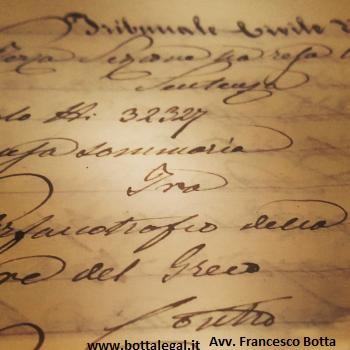 Tribunale Civile
Terza Sezione ha reso
Sentenza
N: 32327
sommaria
Tra
Orfanotrofio della
del Greco
Contro
www.bottalegal.it Avv. Francesco Botta